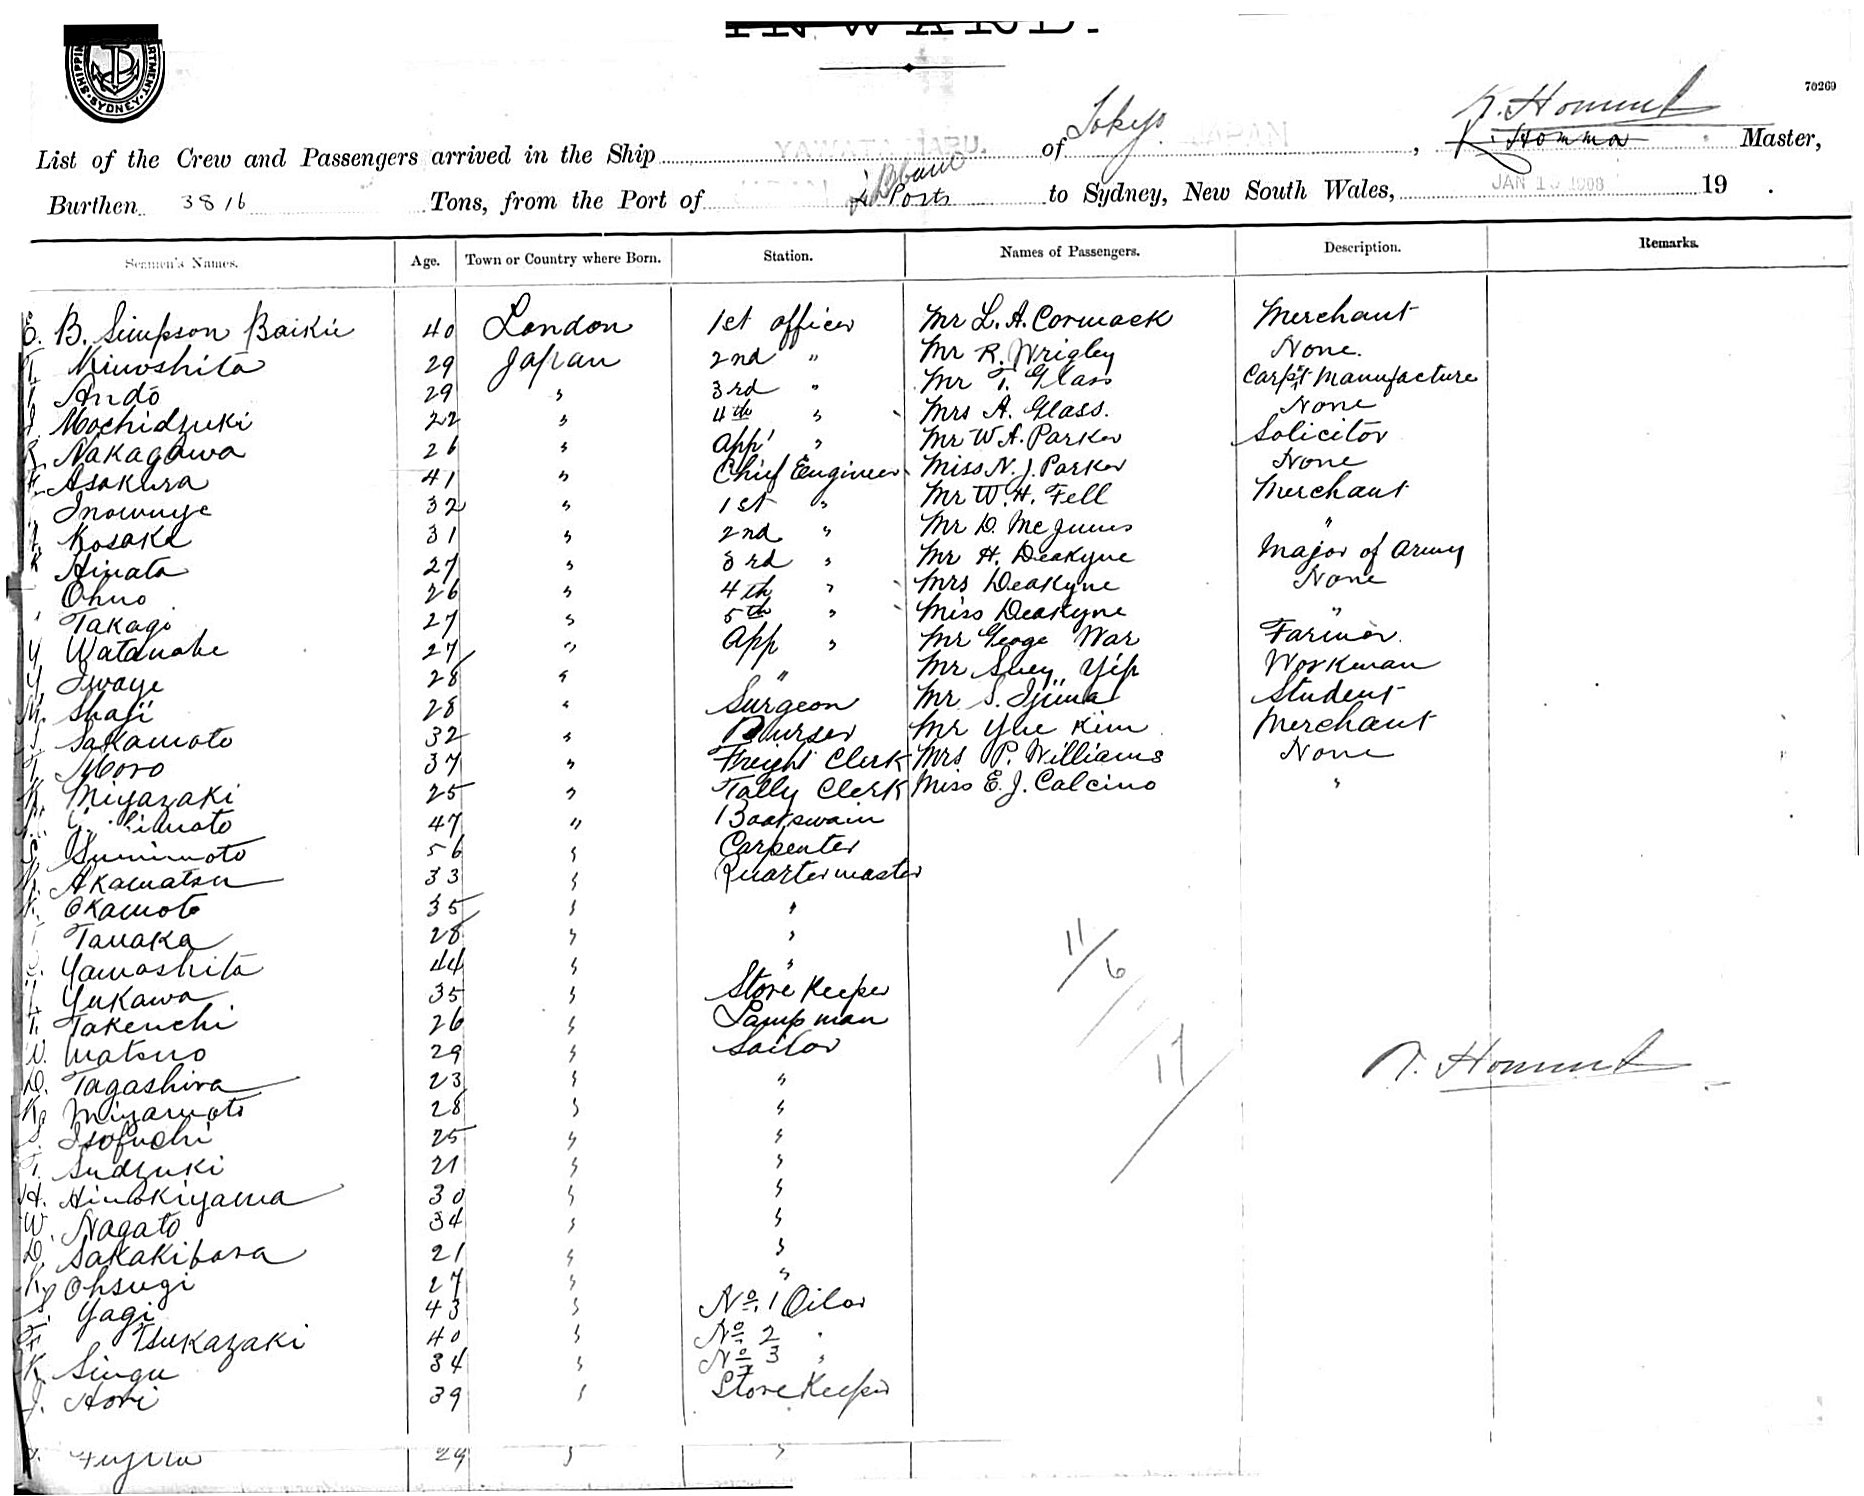 INWARD.
70269
K. Hommel
List of the Crew and Passengers arrived in the Ship YAWATA MARU. of Tokyo JAPAN, K. Homma Master,
Burthen 3816 Tons, from the Port of & Ports to Sydney, New South Wales, JAN 1908 19 .
Seamen's Names. Age. Town or Country where Born. Station. Names of Passengers. Description. Remarks.
B. Simpson Baikie 40 London 1st officer Mr L. A. Cormack Merchant
Kinoshita 29 Japan 2nd " Mr R. Wrigley None.
Ando 29 " 3rd " Mr T. Glass Carpt Manufacture
Mochidzuki 22 " 4th " Mrs A. Glass. None
R. Nakagawa 26 " App " Mr W. A. Parker Solicitor
K. Asakura 41 " Chief Engineer Miss N. J. Parker None
Inowuye 32 " 1st " Mr W. H. Fell Merchant
Kosaka 31 " 2nd " Mr D. "
K Hinata 27 " 3rd " Mr H. Deakyne Major of Army
Ohno 26 " 4th " Mrs Deakyne None
Takagi 27 " 5th " Miss Deakyne "
Y Watanabe 27 " App " Mr George War Farmer.
Y Iwaye 28 " " Mr Suey Yip Workman
M. Shoji 28 " Surgeon Mr S. Ijima Student
Sakamoto 32 " Purser Mr Yue Kim Merchant
Moro 37 " Freight Clerk Mrs P. Williams None
K. Miyazaki 25 " Tally Clerk Miss E. J. Calcino "
47 " Boatswain
S. Sumimoto 56 " Carpenter
Akamatsu 33 " Quartermaster
Okamoto 35 " "
Tanaka 28 " "
Yamashita 44 " "
Yukawa 35 " Store Keeper
T. Takeuchi 26 " Lamp man
Matsuo 29 " Sailor
D. Tagashira 23 " "
K. Miyamoto 28 " "
S. Isofuchi 25 " "
T. Sudzuki 21 " "
H. Hinokiyama 30 " "
W. Nagato 34 " "
D. Sakakibara 21 " "
K. Ohsugi 27 " "
S. Yagi 43 " No. 1 Oiler
Tsukazaki 40 " No. 2 "
K. Singu 34 " No. 3 "
J. Hori 39 " Store Keeper
29 " "
11/6
17
K. Hommel